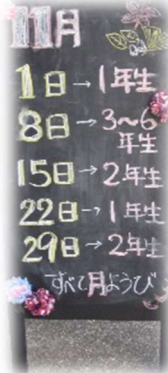 11月
1日→1年生
8日→3~6
年生
15日→2年生
22日→1年生
29日→2年生
すべて月ようび